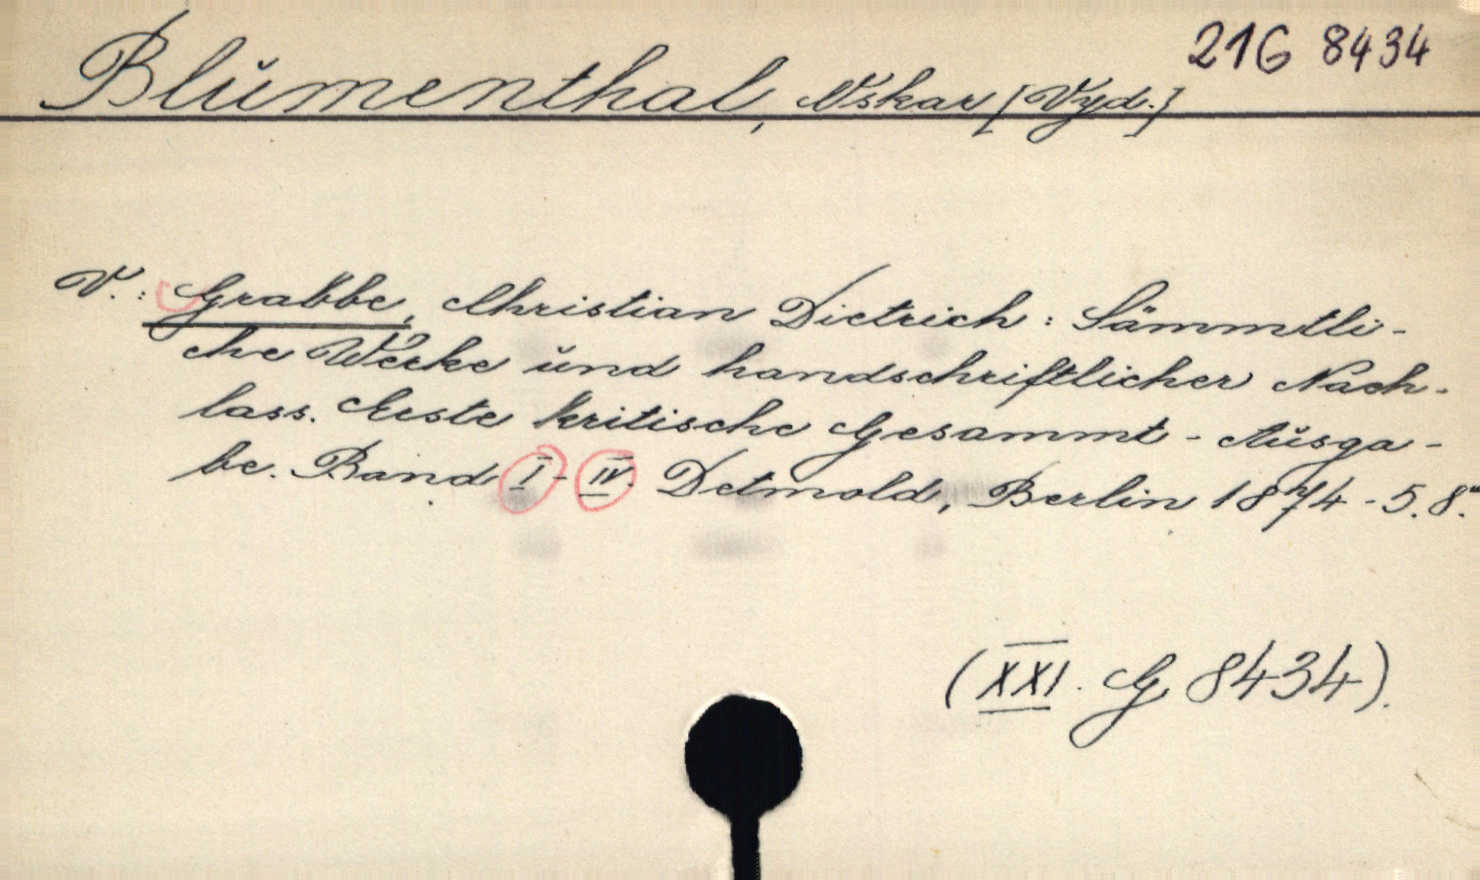 21G 8434
Blumenthal, Oskar [Vyd.]
V.: Grabbe, Christian Dietrich: Sämmtli-
che Werke und handschriftlicher Nach-
lass. Erste kritische Gesammt-Ausga-
be. Band I-IV. Detmold, Berlin 1874-5. 8°.
(XXI. G 8434).